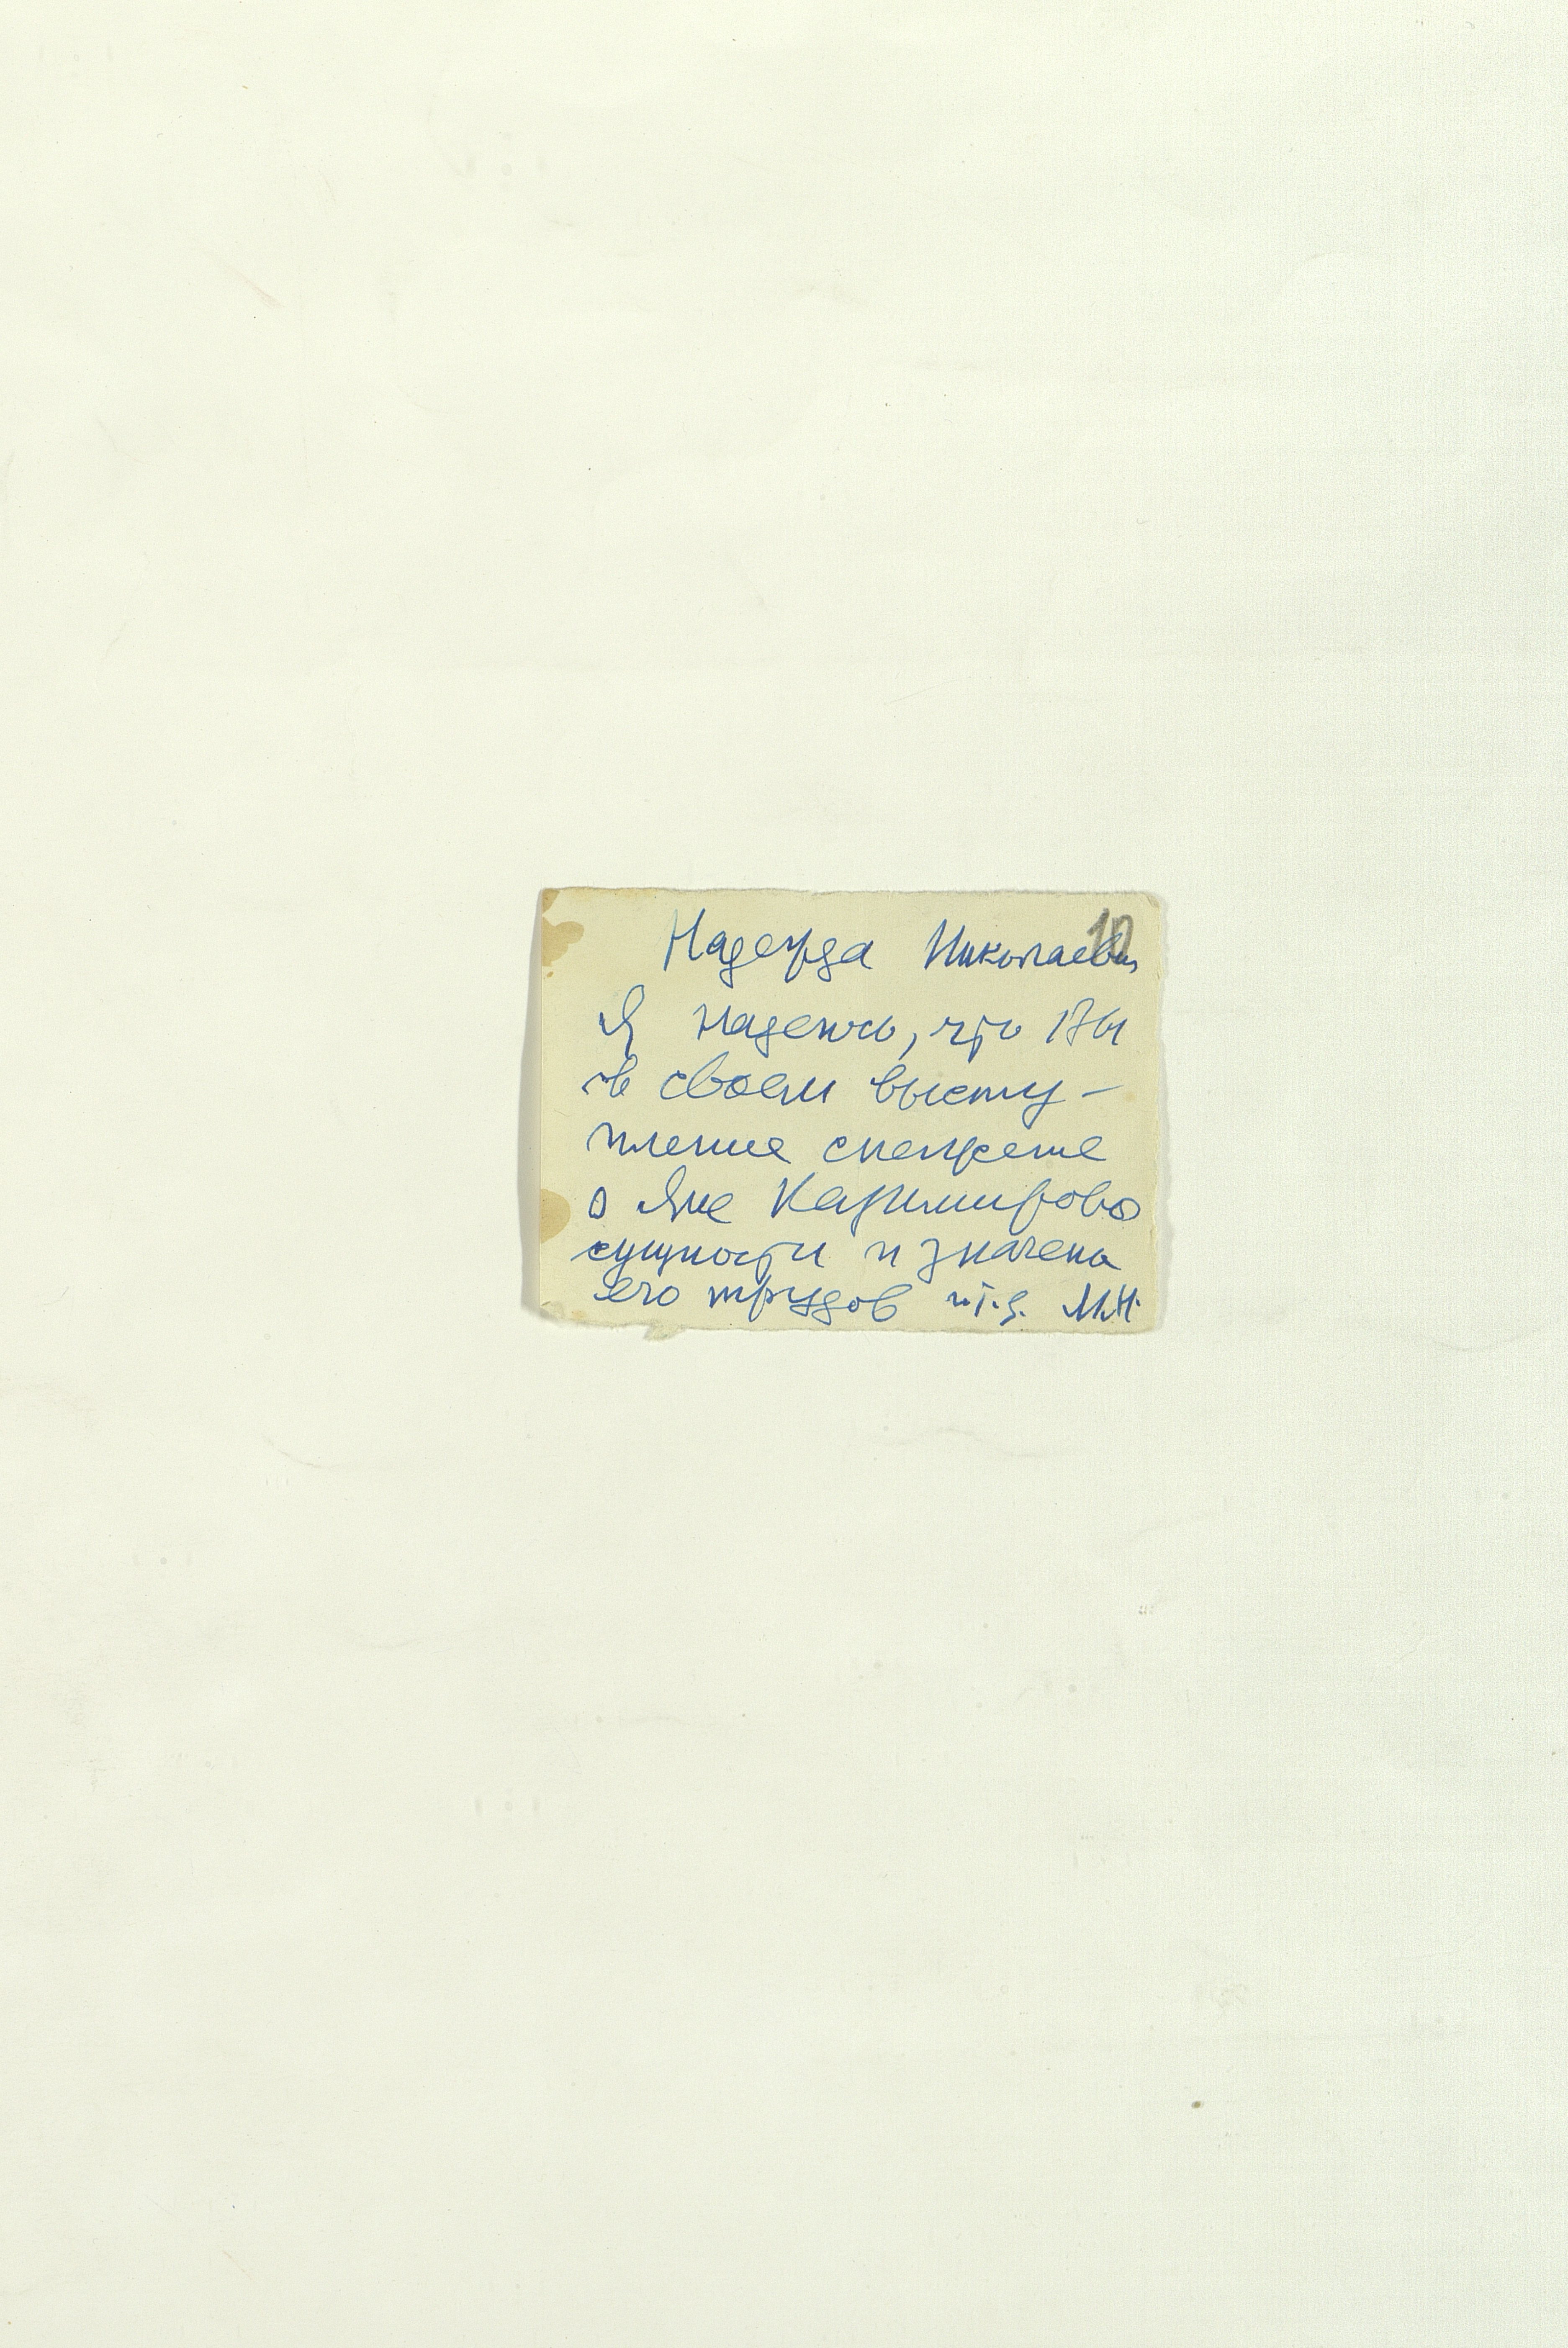 10
Надежда Николаевна
Я надеюсь, что Вы
в своем высту-
плении скажете
о Яне Казимирово
сущности и значени
его трудов и т.д. М.Н.